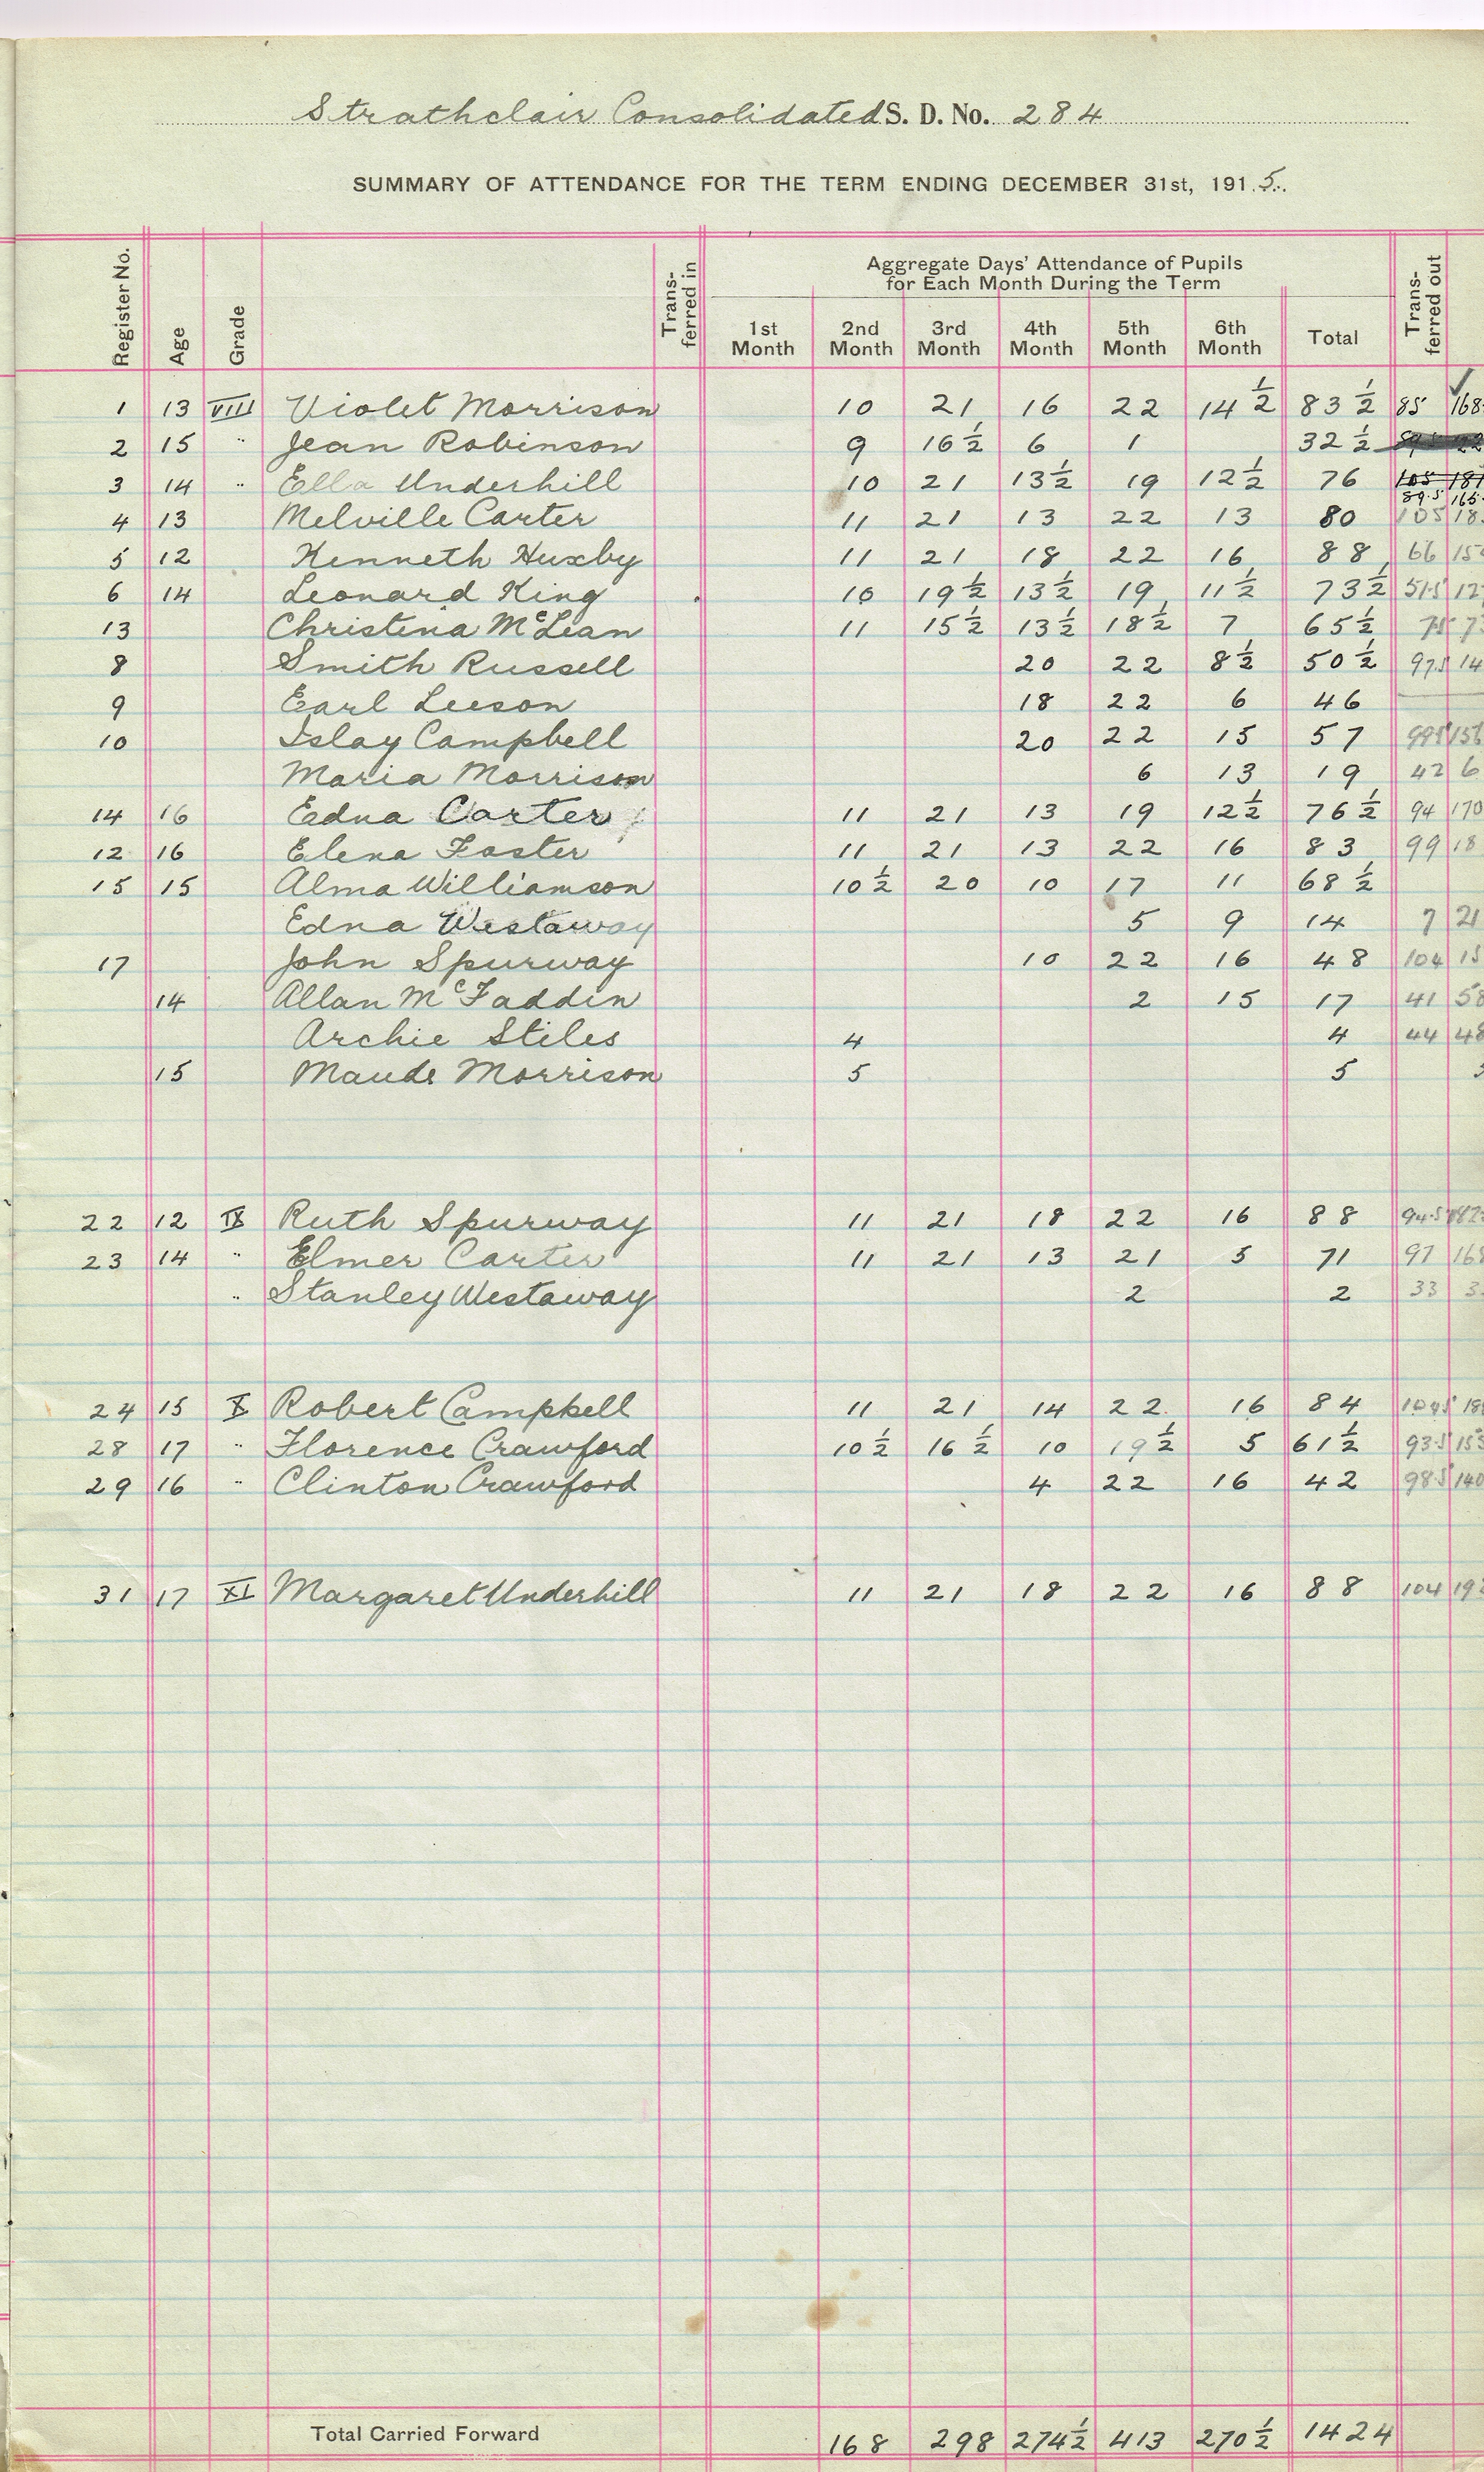 Strathclair Consolidated S. D. No. 284
SUMMARY OF ATTENDANCE FOR THE TERM ENDING DECEMBER 31st, 1915.
Register No. Age Grade Trans-ferred in Aggregate Days' Attendance of Pupils for Each Month During the Term Trans-ferred out
1st Month 2nd Month 3rd Month 4th Month 5th Month 6th Month Total
1 13 VIII Violet Morrison 10 21 16 22 14½ 83½ 85 168
2 15 " Jean Robinson 9 16½ 6 1 32½
3 14 " Ella Underhill 10 21 13½ 19 12½ 76 105 181
89.5 165
4 13 Melville Carter 11 21 13 22 13 80 105 18
5 12 Kenneth Huxby 11 21 18 22 16 88 66 15
6 14 Leonard King 10 19½ 13½ 19 11½ 73½ 51.5 12
13 Christena McLean 11 15½ 13½ 18½ 7 65½ 7
8 Smith Russell 20 22 8½ 50½ 97.5 14
9 Earl Leeson 18 22 6 46
10 Islay Campbell 20 22 15 57 99.5 156
Maria Morrison 6 13 19 42 6
14 16 Edna Carter 11 21 13 19 12½ 76½ 94 170
12 16 Elena Foster 11 21 13 22 16 83 99 18
15 15 Alma Williamson 10½ 20 10 17 11 68½
Edna Westaway 5 9 14 7 21
17 John Spurway 10 22 16 48 104 15
14 Allan McFaddin 2 15 17 41 58
Archie Stiles 4 4 44 48
15 Maude Morrison 5 5
22 12 IX Ruth Spurway 11 21 18 22 16 88 94.5 182
23 14 " Elmer Carter 11 21 13 21 5 71 97 168
" Stanley Westaway 2 2 33 3
24 15 X Robert Campbell 11 21 14 22 16 84 104.5 18
28 17 " Florence Crawford 10½ 16½ 10 19½ 5 61½ 93.5 155
29 16 " Clinton Crawford 4 22 16 42 98.5 140
31 17 XI Margaret Underhill 11 21 18 22 16 88 104 19
Total Carried Forward 168 298 274½ 413 270½ 1424